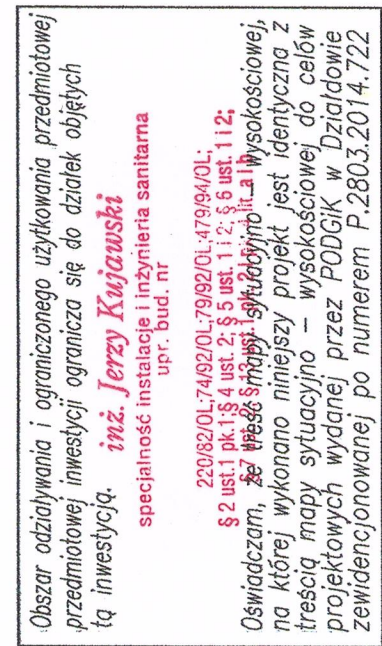 Obszar odziaływania i ograniczonego użytkowania przedmiotowej
przedmiotowej inwestycji ogranicza się do działek objętych
tą inwestycją.
inż. Jerzy Kujawski
specjalność instalacje i inżynieria sanitarna
upr. bud. nr
220/82/OL;74/92/OL;79/92/OL;479/94/OL;
§ 2 ust.1 pk.1;§ 4 ust. 2; § 5 ust. 1 i 2; § 6 ust. 1 i 2;
§ 7 § 13 lit. a i b
Oświadczam, że treść mapy sytuacyjno – wysokościowej,
na której wykonano niniejszy projekt jest identyczna z
treścią mapy sytuacyjno – wysokościowej do celów
projektowych wydanej przez PODGiK w Działdowie
zewidencjonowanej po numerem P.2803.2014.722